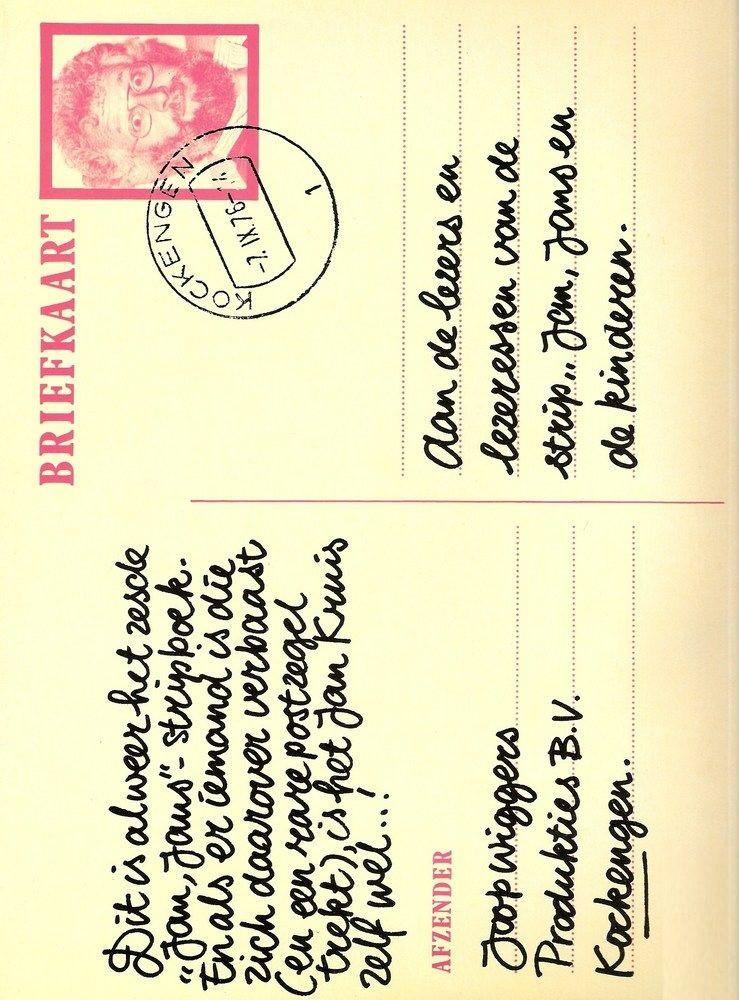 BRIEFKAART
KOCKENGEN
-7.IX.76-
1
Dit is alweer het zesde
"Jan, Jans"- stripboek.
En als er iemand is die
zich daarover verbaast
(en een rare postzegel
trekt), is het Jan Kruis
zelf wel...!
AFZENDER
Joop Wiggers
Produkties B.V.
Kockengen.
Aan de lezers en
lezeressen van de
strip „ Jan, Jans en
de kinderen.